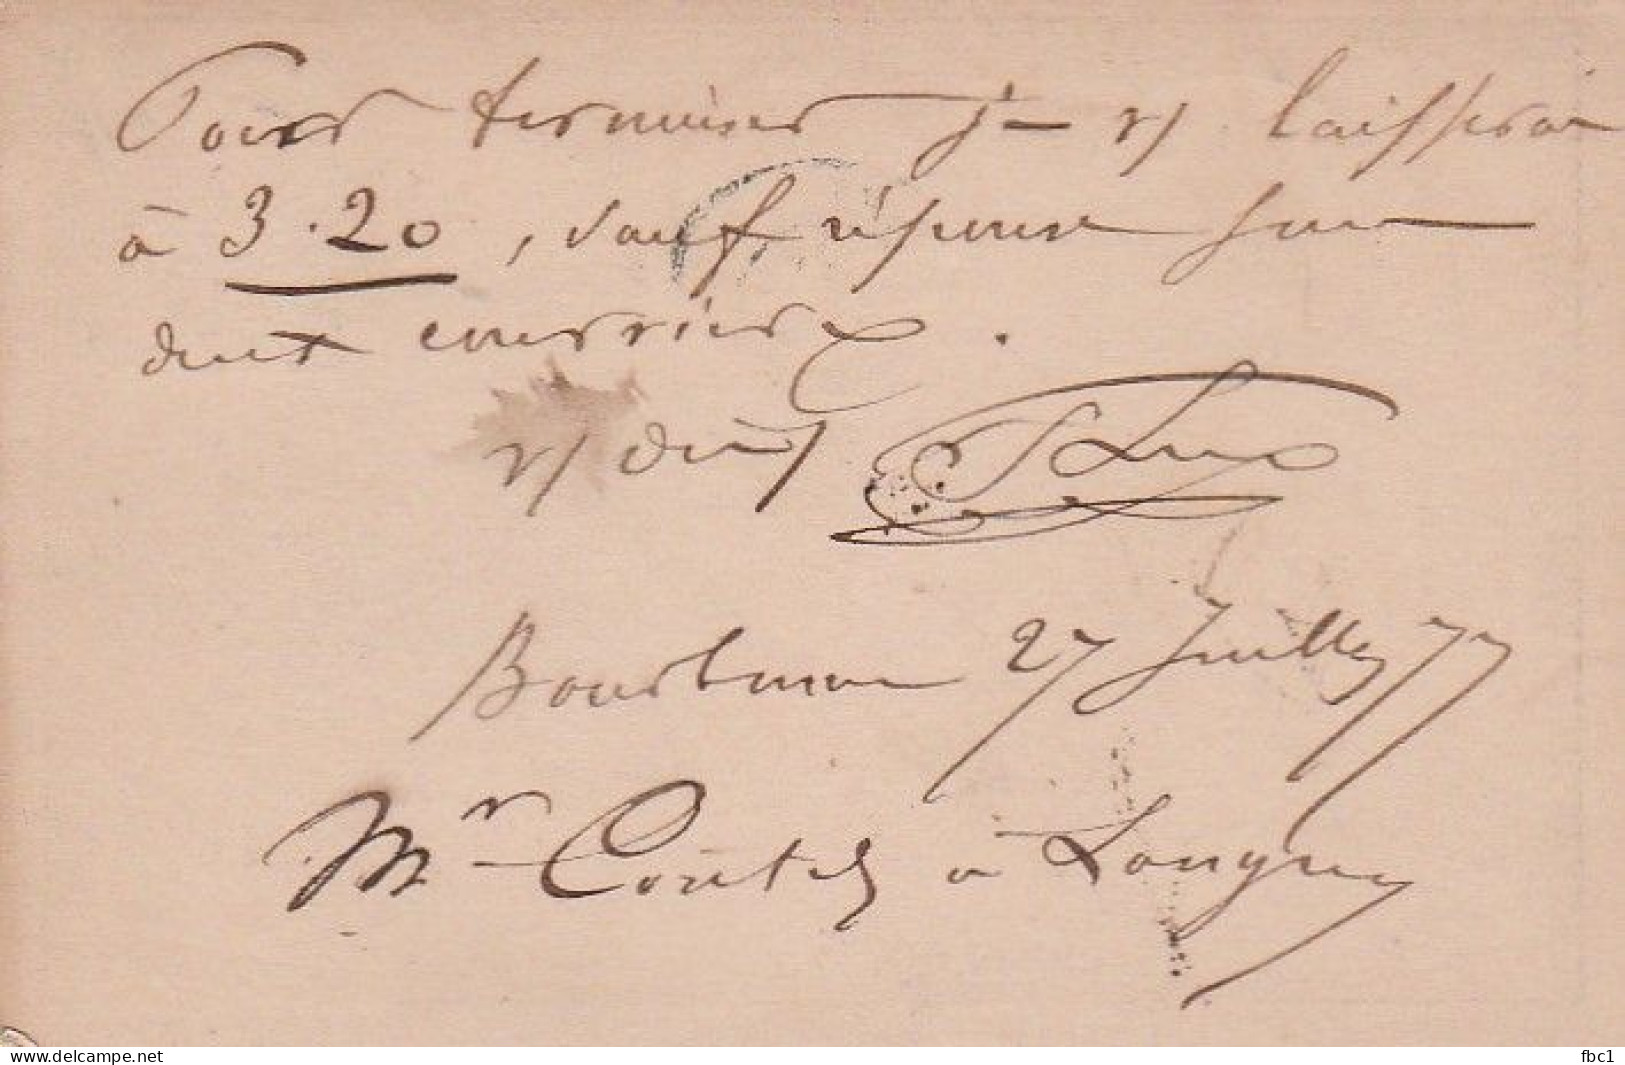 Pour terminer je v/ laisserai
à 3.20, sauf réponse sur
deux courriers.
v/ dév/
Bourbonne 27 Juillet 77
Mr Contel à Longwy
www.delcampe.net
fbc1